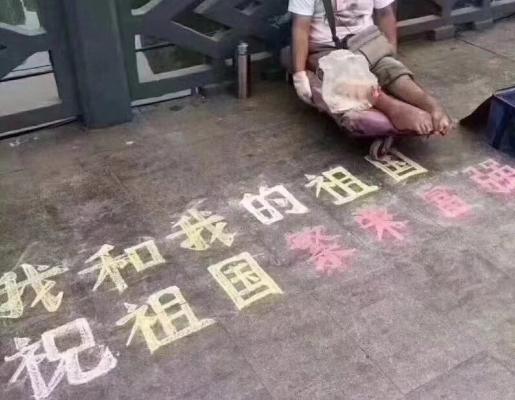 我和我的祖国
祝祖国繁荣富强